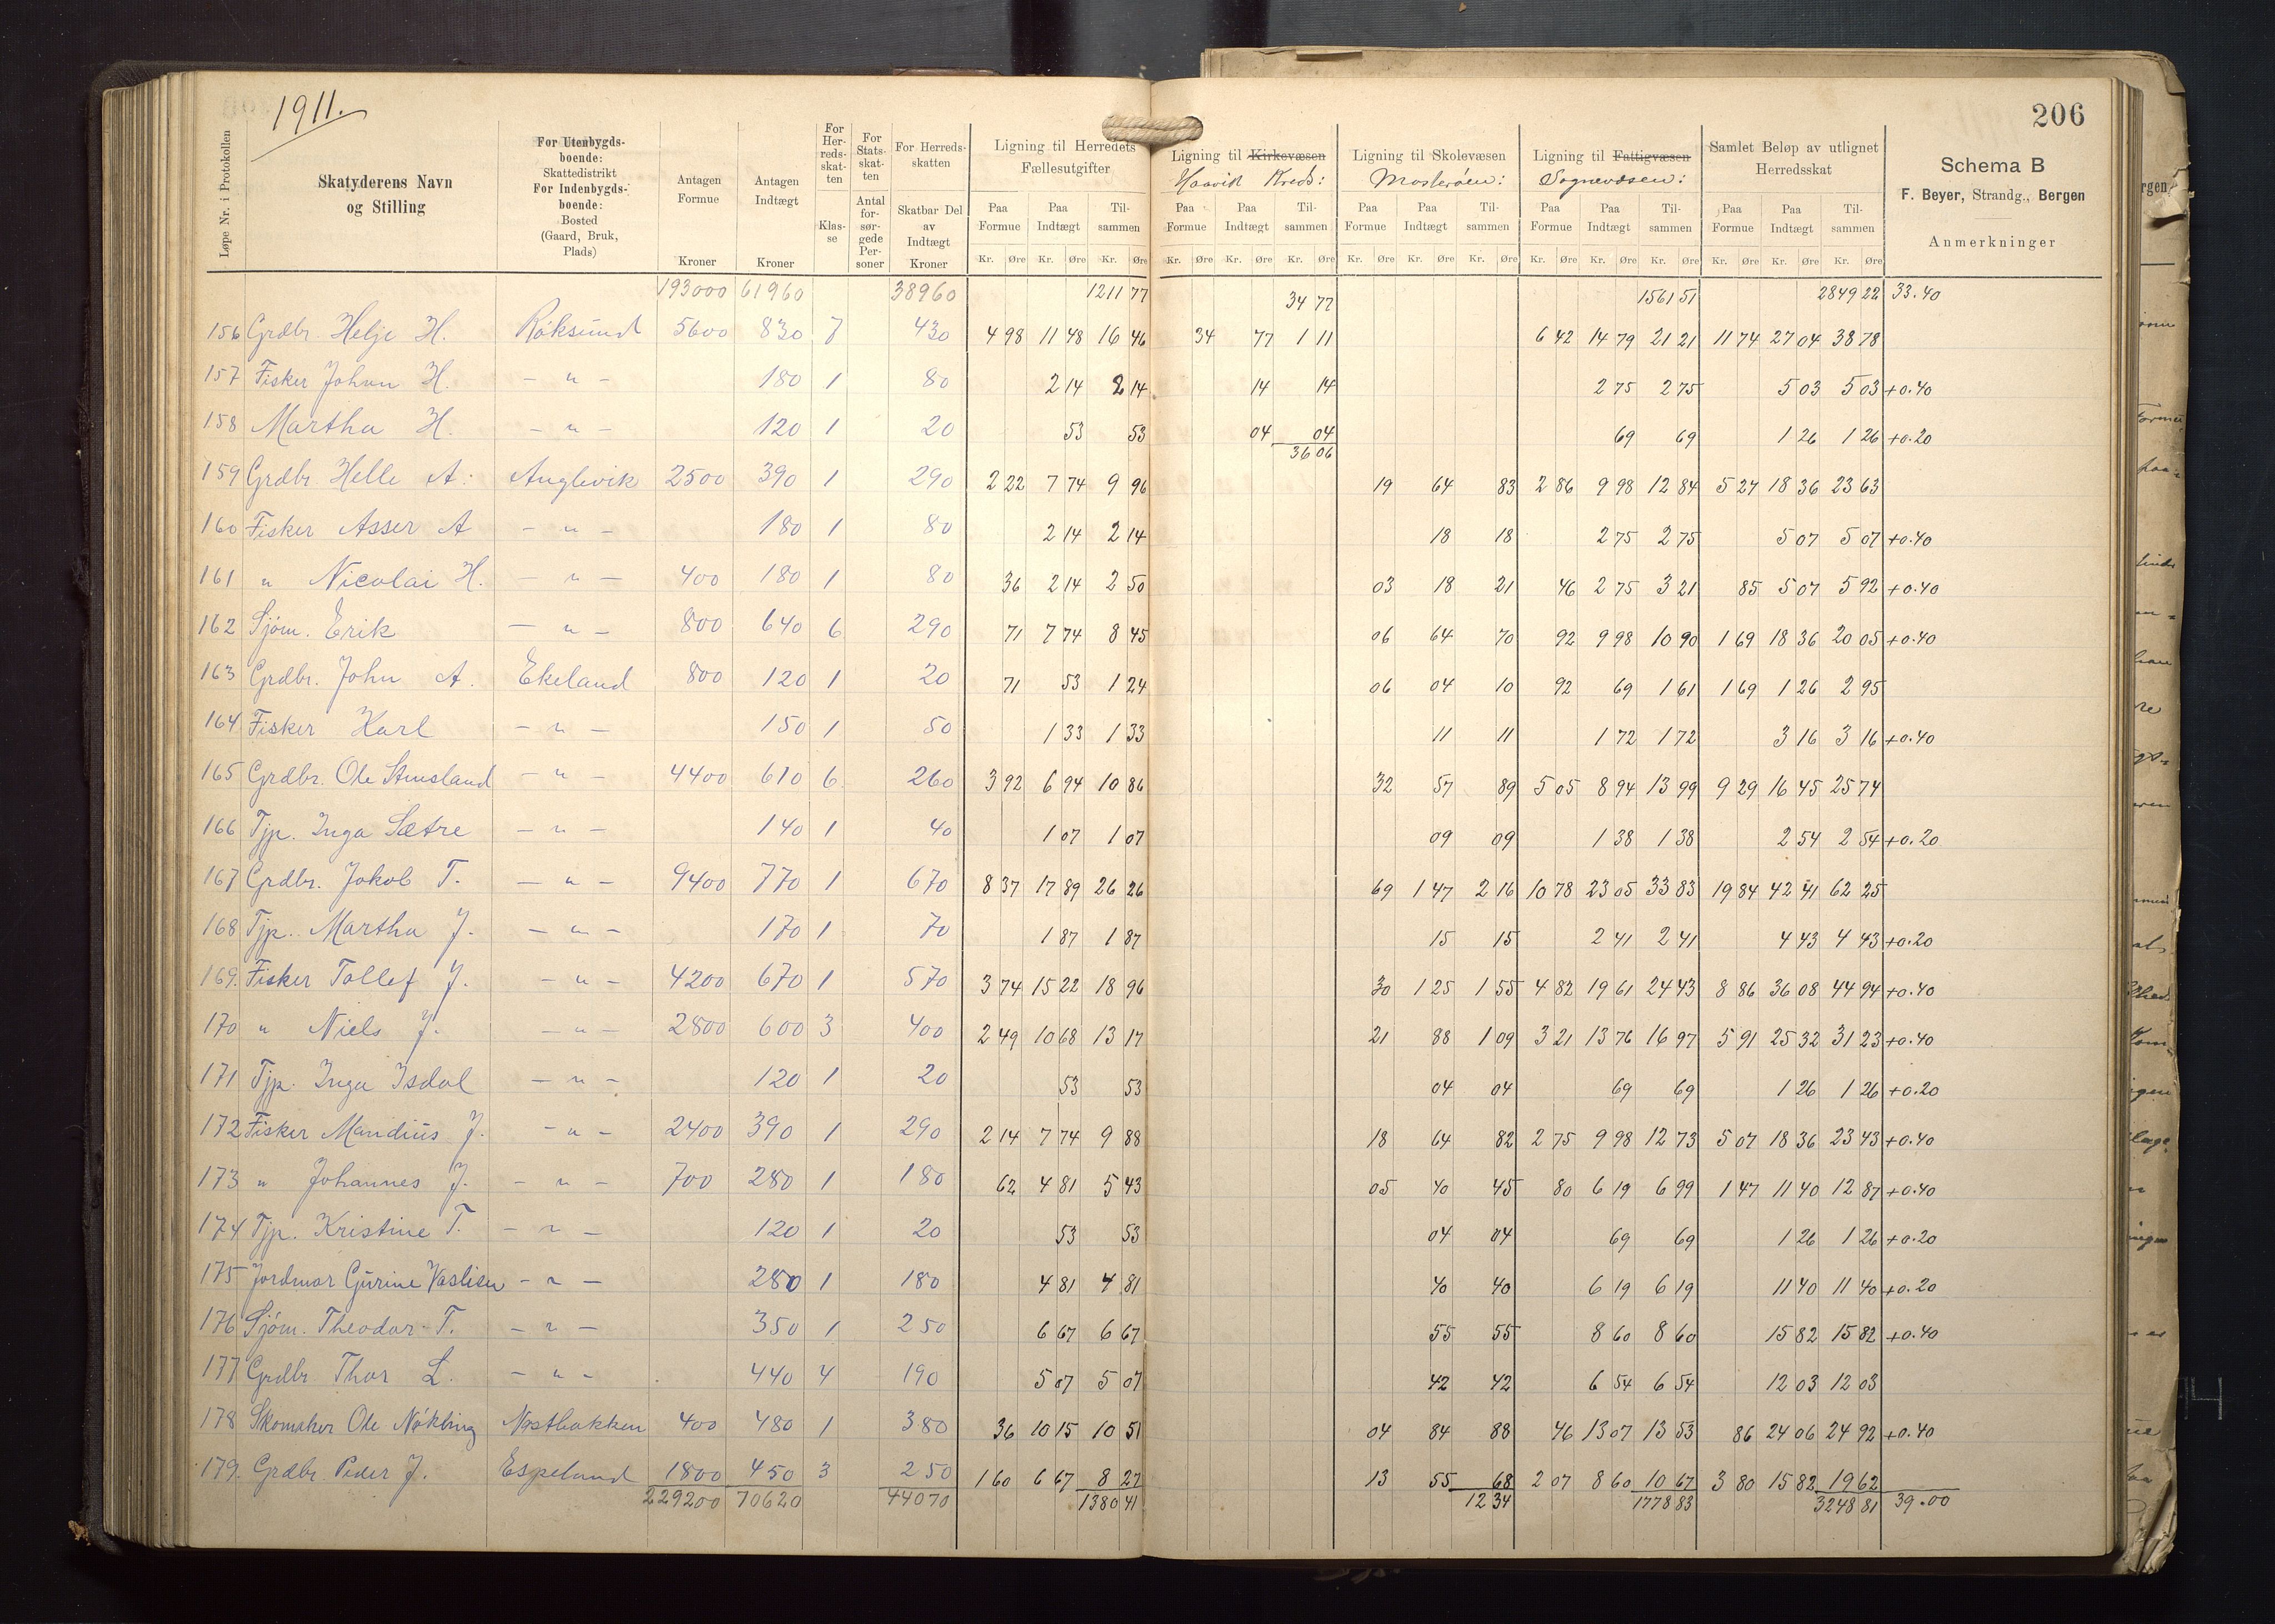 1911.
206
Løpe Nr. i Protokollen
Skatyderens Navn og Stilling
For Utenbygds-boende: Skattedistrikt For Indenbygds-boende: Bosted (Gaard, Bruk, Plads)
Antagen Formue Kroner
Antagen Indtægt Kroner
For Herreds-skatten Klasse
For Stats-skatten Antal forsørgede Personer
For Herreds-skatten Skatbar Del av Indtægt Kroner
Ligning til Herredets Fællesutgifter
Ligning til Kirkevæsen Haavik Kreds:
Ligning til Skolevæsen Mosterøen:
Ligning til Fattigvæsen Sognevæsen:
Samlet Beløp av utlignet Herredsskat
Schema B
F. Beyer, Strandg., Bergen
Anmerkninger
Paa Formue Paa Indtægt Til-sammen Paa Formue Paa Indtægt Til-sammen Paa Formue Paa Indtægt Til-sammen Paa Formue Paa Indtægt Til-sammen Paa Formue Paa Indtægt Til-sammen
Kr. Øre Kr. Øre Kr. Øre Kr. Øre Kr. Øre Kr. Øre Kr. Øre Kr. Øre Kr. Øre Kr. Øre Kr. Øre Kr. Øre Kr. Øre Kr. Øre Kr. Øre
193000 61960 38960 1211 77 34 77 1561 51 2849 22 33.40
156 Grdbr. Helje H. Röksund 5600 830 7 430 4 98 11 48 16 46 34 77 1 11 6 42 14 79 21 21 11 74 27 04 38 78
157 Fisker Johan H. - " - 180 1 80 2 14 2 14 14 14 2 75 2 75 5 03 5 03 +0.40
158 Martha H. - " - 120 1 20 53 53 04 04 69 69 1 26 1 26 +0.20
36 06
159 Grdbr. Helle A. Anglevik 2500 390 1 290 2 22 7 74 9 96 19 64 83 2 86 9 98 12 84 5 27 18 36 23 63
160 Fisker Asser A - " - 180 1 80 2 14 2 14 18 18 2 75 2 75 5 07 5 07 +0.40
161 " Nicolai H. - " - 400 180 1 80 36 2 14 2 50 03 18 21 46 2 75 3 21 85 5 07 5 92 +0.40
162 Sjøm. Erik - " - 800 640 6 290 71 7 74 8 45 06 64 70 92 9 98 10 90 1 69 18 36 20 05 +0.40
163 Grdbr. John A. Ekeland 800 120 1 20 71 53 1 24 06 04 10 92 69 1 61 1 69 1 26 2 95
164 Fisker Karl - " - 150 1 50 1 33 1 33 11 11 1 72 1 72 3 16 3 16 +0.40
165 Grdbr. Ole Stusland - " - 4400 610 6 260 3 92 6 94 10 86 32 57 89 5 05 8 94 13 99 9 29 16 45 25 74
166 Tjp. Inga Sætre - " - 140 1 40 1 07 1 07 09 09 1 38 1 38 2 54 2 54 +0.20
167 Grdbr. Jakob T. - " - 9400 770 1 670 8 37 17 89 26 26 69 1 47 2 16 10 78 23 05 33 83 19 84 42 41 62 25
168 Tjp. Martha J. - " - 170 1 70 1 87 1 87 15 15 2 41 2 41 4 43 4 43 +0.20
169. Fisker Tollef J. - " - 4200 670 1 570 3 74 15 22 18 96 30 1 25 1 55 4 82 19 61 24 43 8 86 36 08 44 94 +0.40
170 " Niels J. - " - 2800 600 3 400 2 49 10 68 13 17 21 88 1 09 3 21 13 76 16 97 5 91 25 32 31 23 +0.40
171 Tjp. Inga Isdal - " - 120 1 20 53 53 04 04 69 69 1 26 1 26 +0.20
172 Fisker Mandius J. - " - 2400 390 1 290 2 14 7 74 9 88 18 64 82 2 75 9 98 12 73 5 07 18 36 23 43 +0.40
173 " Johannes J. - " - 700 280 1 180 62 4 81 5 43 05 40 45 80 6 19 6 99 1 47 11 40 12 87 +0.40
174 Tjp. Kristine T. - " - 120 1 20 53 53 04 04 69 69 1 26 1 26 +0.20
175 Jordmor Gurine Vaslien - " - 280 1 180 4 81 4 81 40 40 6 19 6 19 11 40 11 40 +0.20
176 Sjøm. Theodor T. - " - 350 1 250 6 67 6 67 55 55 8 60 8 60 15 82 15 82 +0.40
177 Grdbr Thor L. - " - 440 4 190 5 07 5 07 42 42 6 54 6 54 12 03 12 03
178 Skomaker Ole Nökling Nostbakken 400 480 1 380 36 10 15 10 51 04 84 88 46 13 07 13 53 86 24 06 24 92 +0.40
179. Grdbr. Peder J. Espeland 1800 450 3 250 1 60 6 67 8 27 13 55 68 2 07 8 60 10 67 3 80 15 82 19 62
229200 70620 44070 1380 41 12 34 1778 83 3248 81 39.00